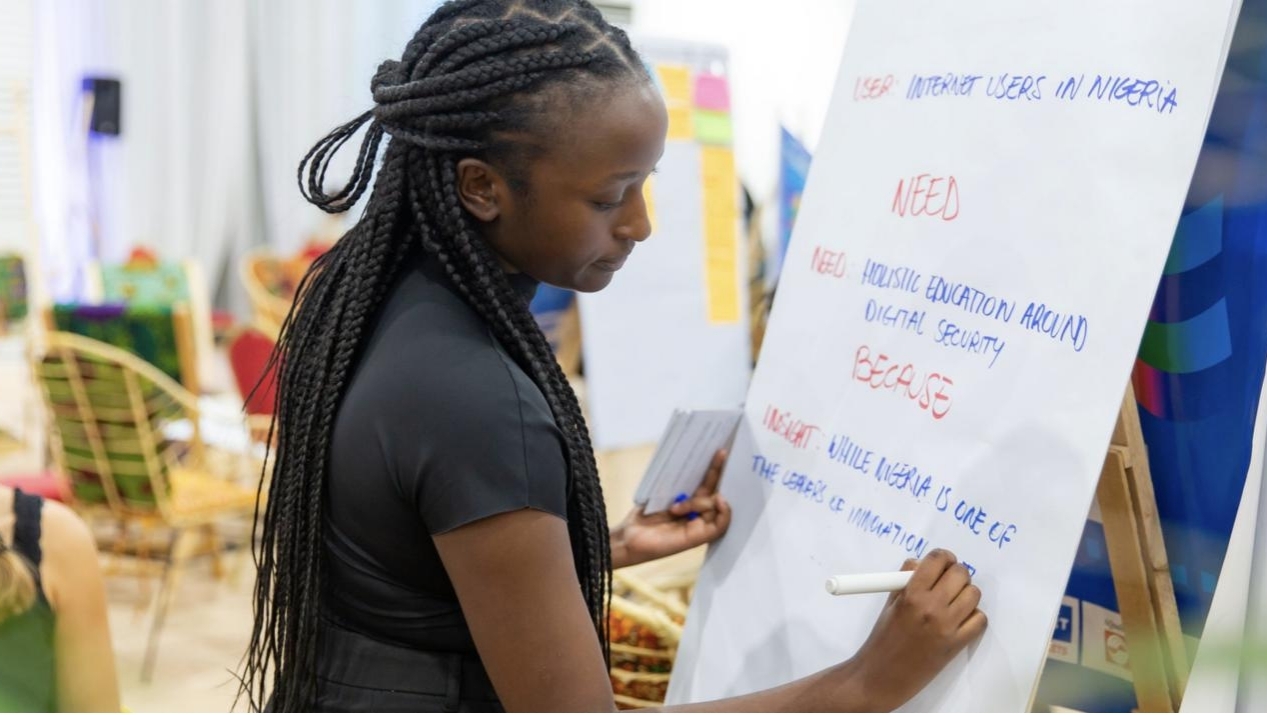 USER: INTERNET USERS IN NIGERIA
NEED
NEED: HOLISTIC EDUCATION AROUND
DIGITAL SECURITY
BECAUSE
INSIGHT: WHILE NIGERIA IS ONE OF
THE LEADERS OF INNOVATION